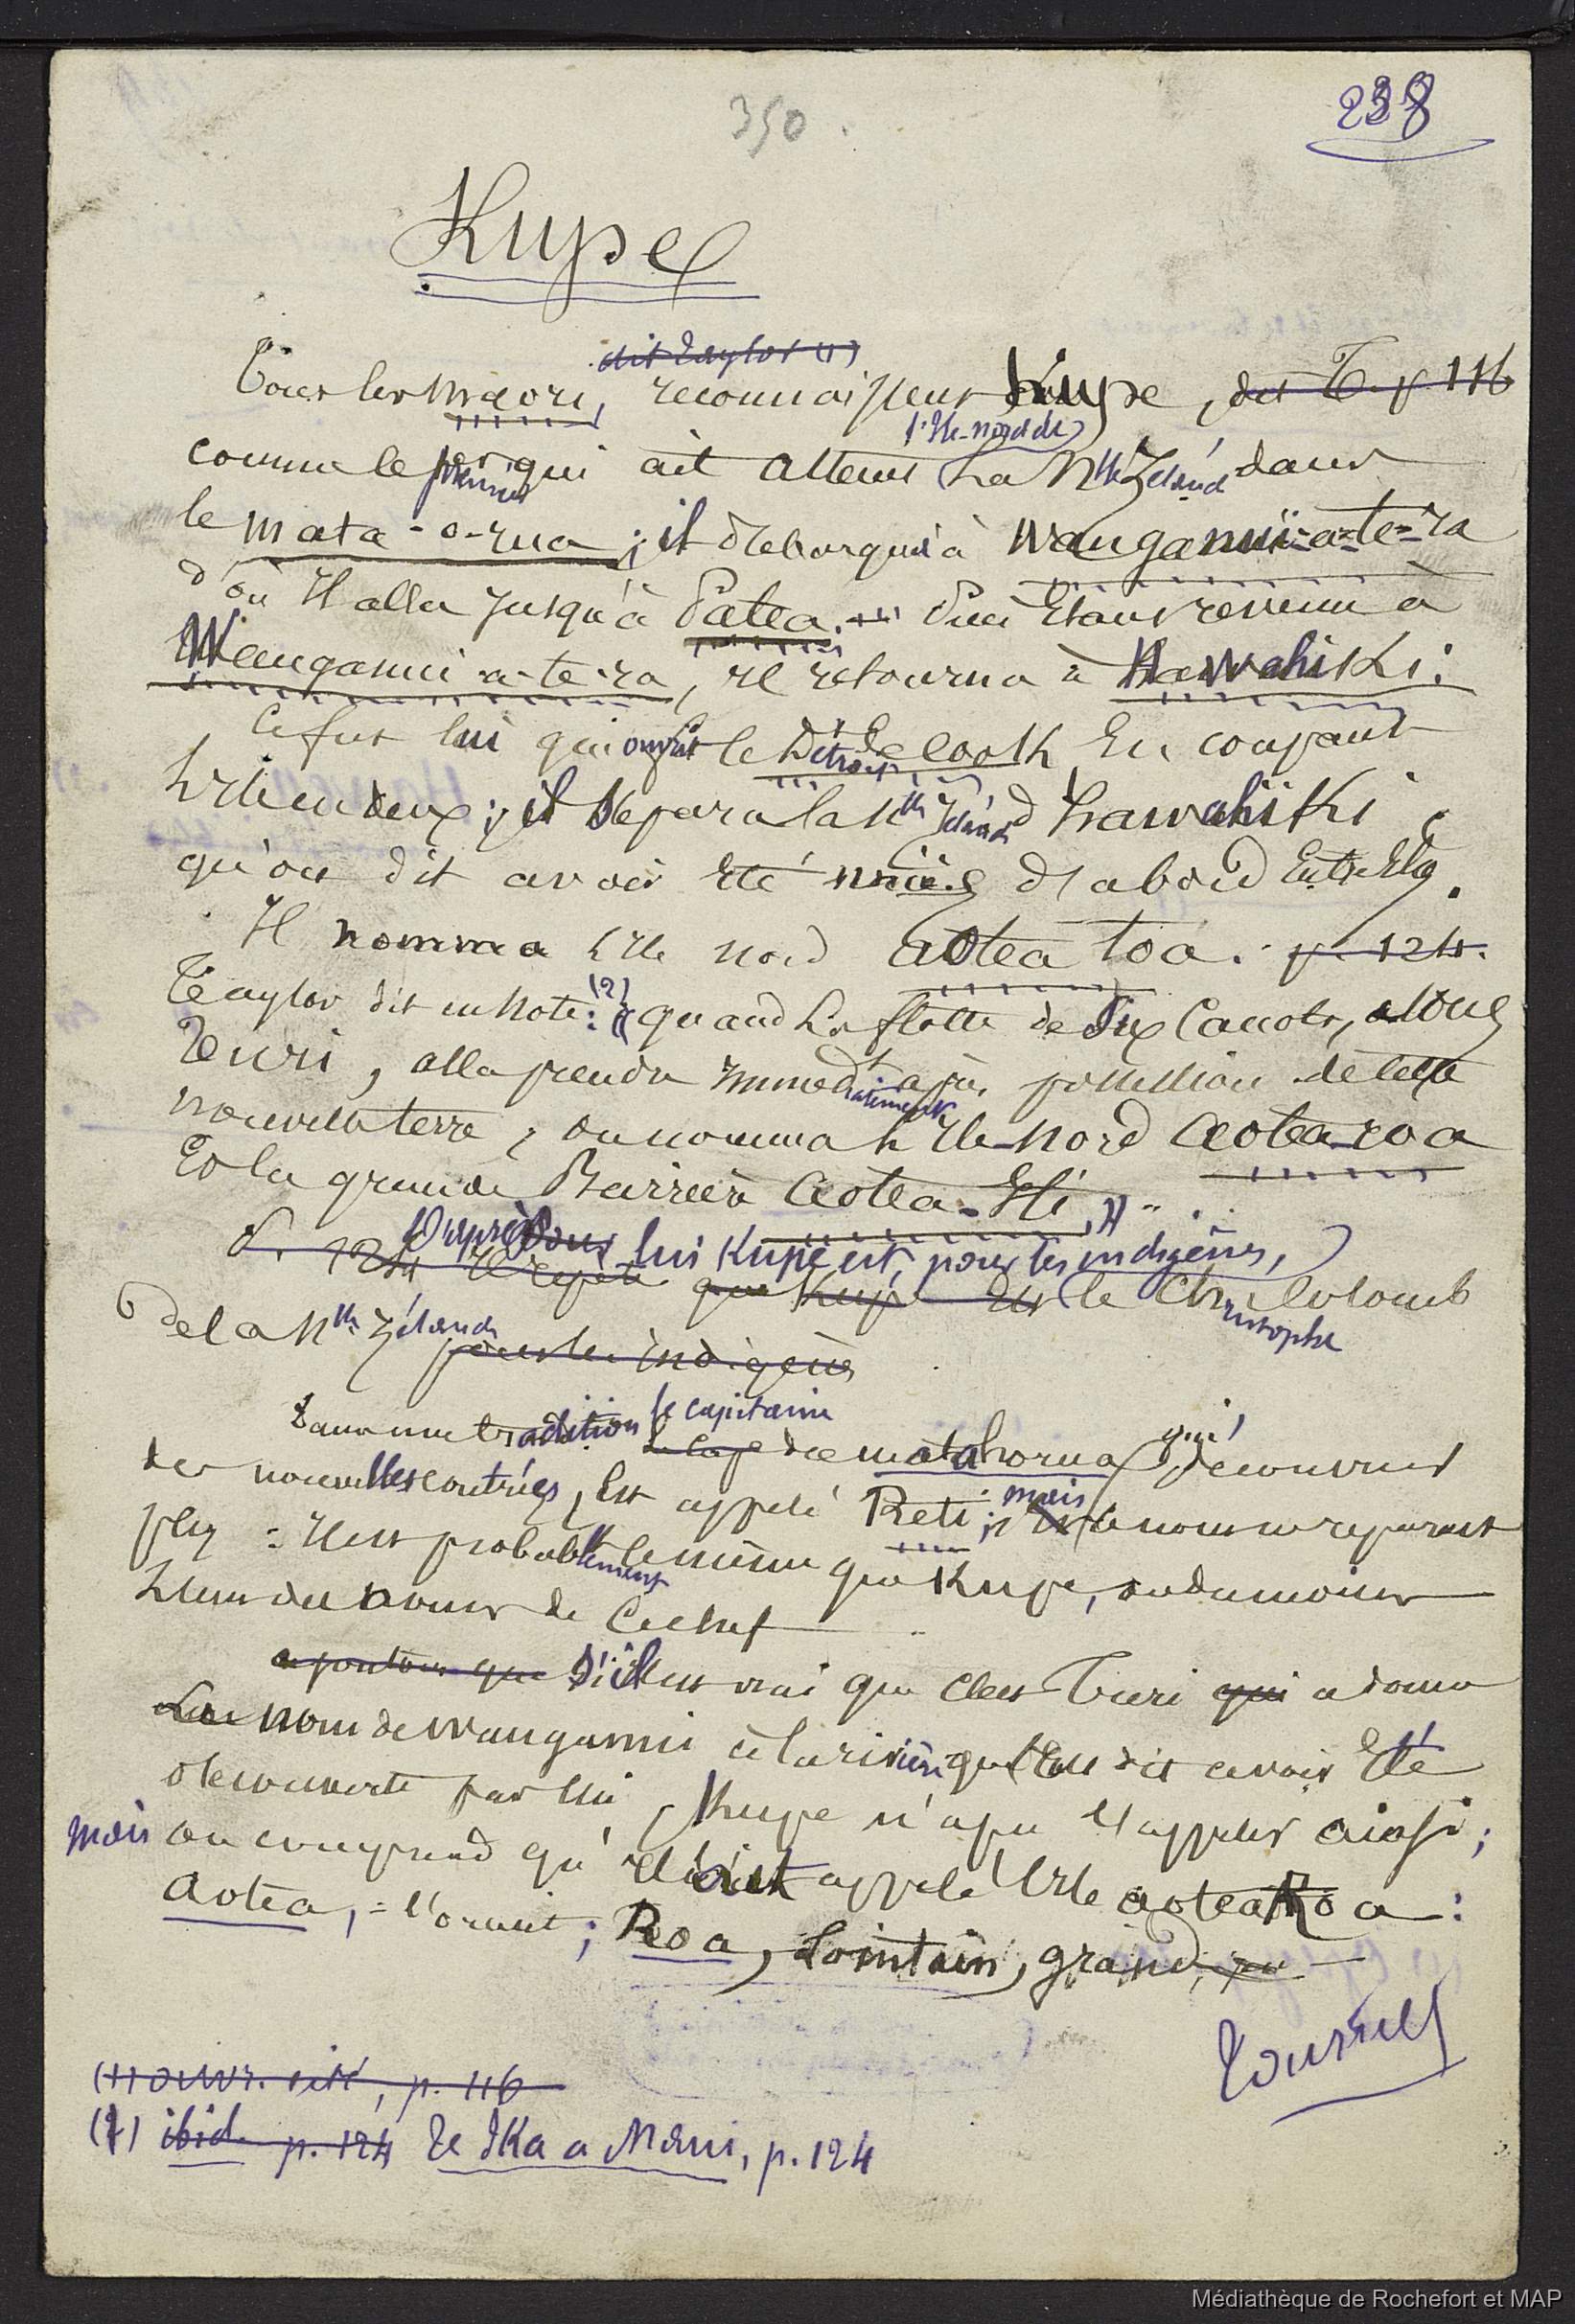 350.
238
Kupe
dit Taylor (1)
Tous les maori, reconnaissent Kupe, dit T. p. 116
l'Ile-nord de
comme le premier qui ait atteint la Nlle Zéland dans
le mata-o-rua; il débarqua à Wanganui-a-te-ra
d'où Il alla jusqu'à Patea. Puis Etant revenu à
Wanganui-a-te-ra, il retourna à Hawahiki.
Ce fut lui qui ouvrit le Détroit de Cook En coupant
l'Ile en deux; il sépara la Nlle Zélande d'hawahiki
qu'on dit avoir été unies d'abord Entr'Elles.
Il nomma l'Ile nord aotea toa. p. 124.
Taylor dit en note: (2) « quand la flotte de Six Canots, avec
Turi, alla prendre immédiatement après possession de cette
nouvelle terre, on nomma l'Ile-nord Aotea-roa
Et la grande Barrière Aotea-Iti. »
D'après lui Kupe est, pour les indigènes,
p. 124 Il répète que Kupe est le Christophe Colomb
de la Nlle Zélande pour les indigènes
Dans une tradition le capitaine du matahorua qui découvrit
des nouvelles contrées, Est appelé Reti; mais ce nom ne reparait
plus = Il est probablement le même que Kupe, ou du moins
l'un des noms de ce chef
ajoutons que S'il est vrai que c'est Turi qui a donné
Le nom de Wanganui à la rivière qu'on dit avoir Eté
découverte par lui, Kupe n'a pu l'appeler ainsi;
mais on comprend qu'il ait appelé l'Ile aotea Roa:
Aotea, = l'orient; Roa, Lointain, grand,
(1) ouvr. cité, p. 116
(2) ibid. p. 124 Te Ika a Maui, p. 124
Médiathèque de Rochefort et MAP